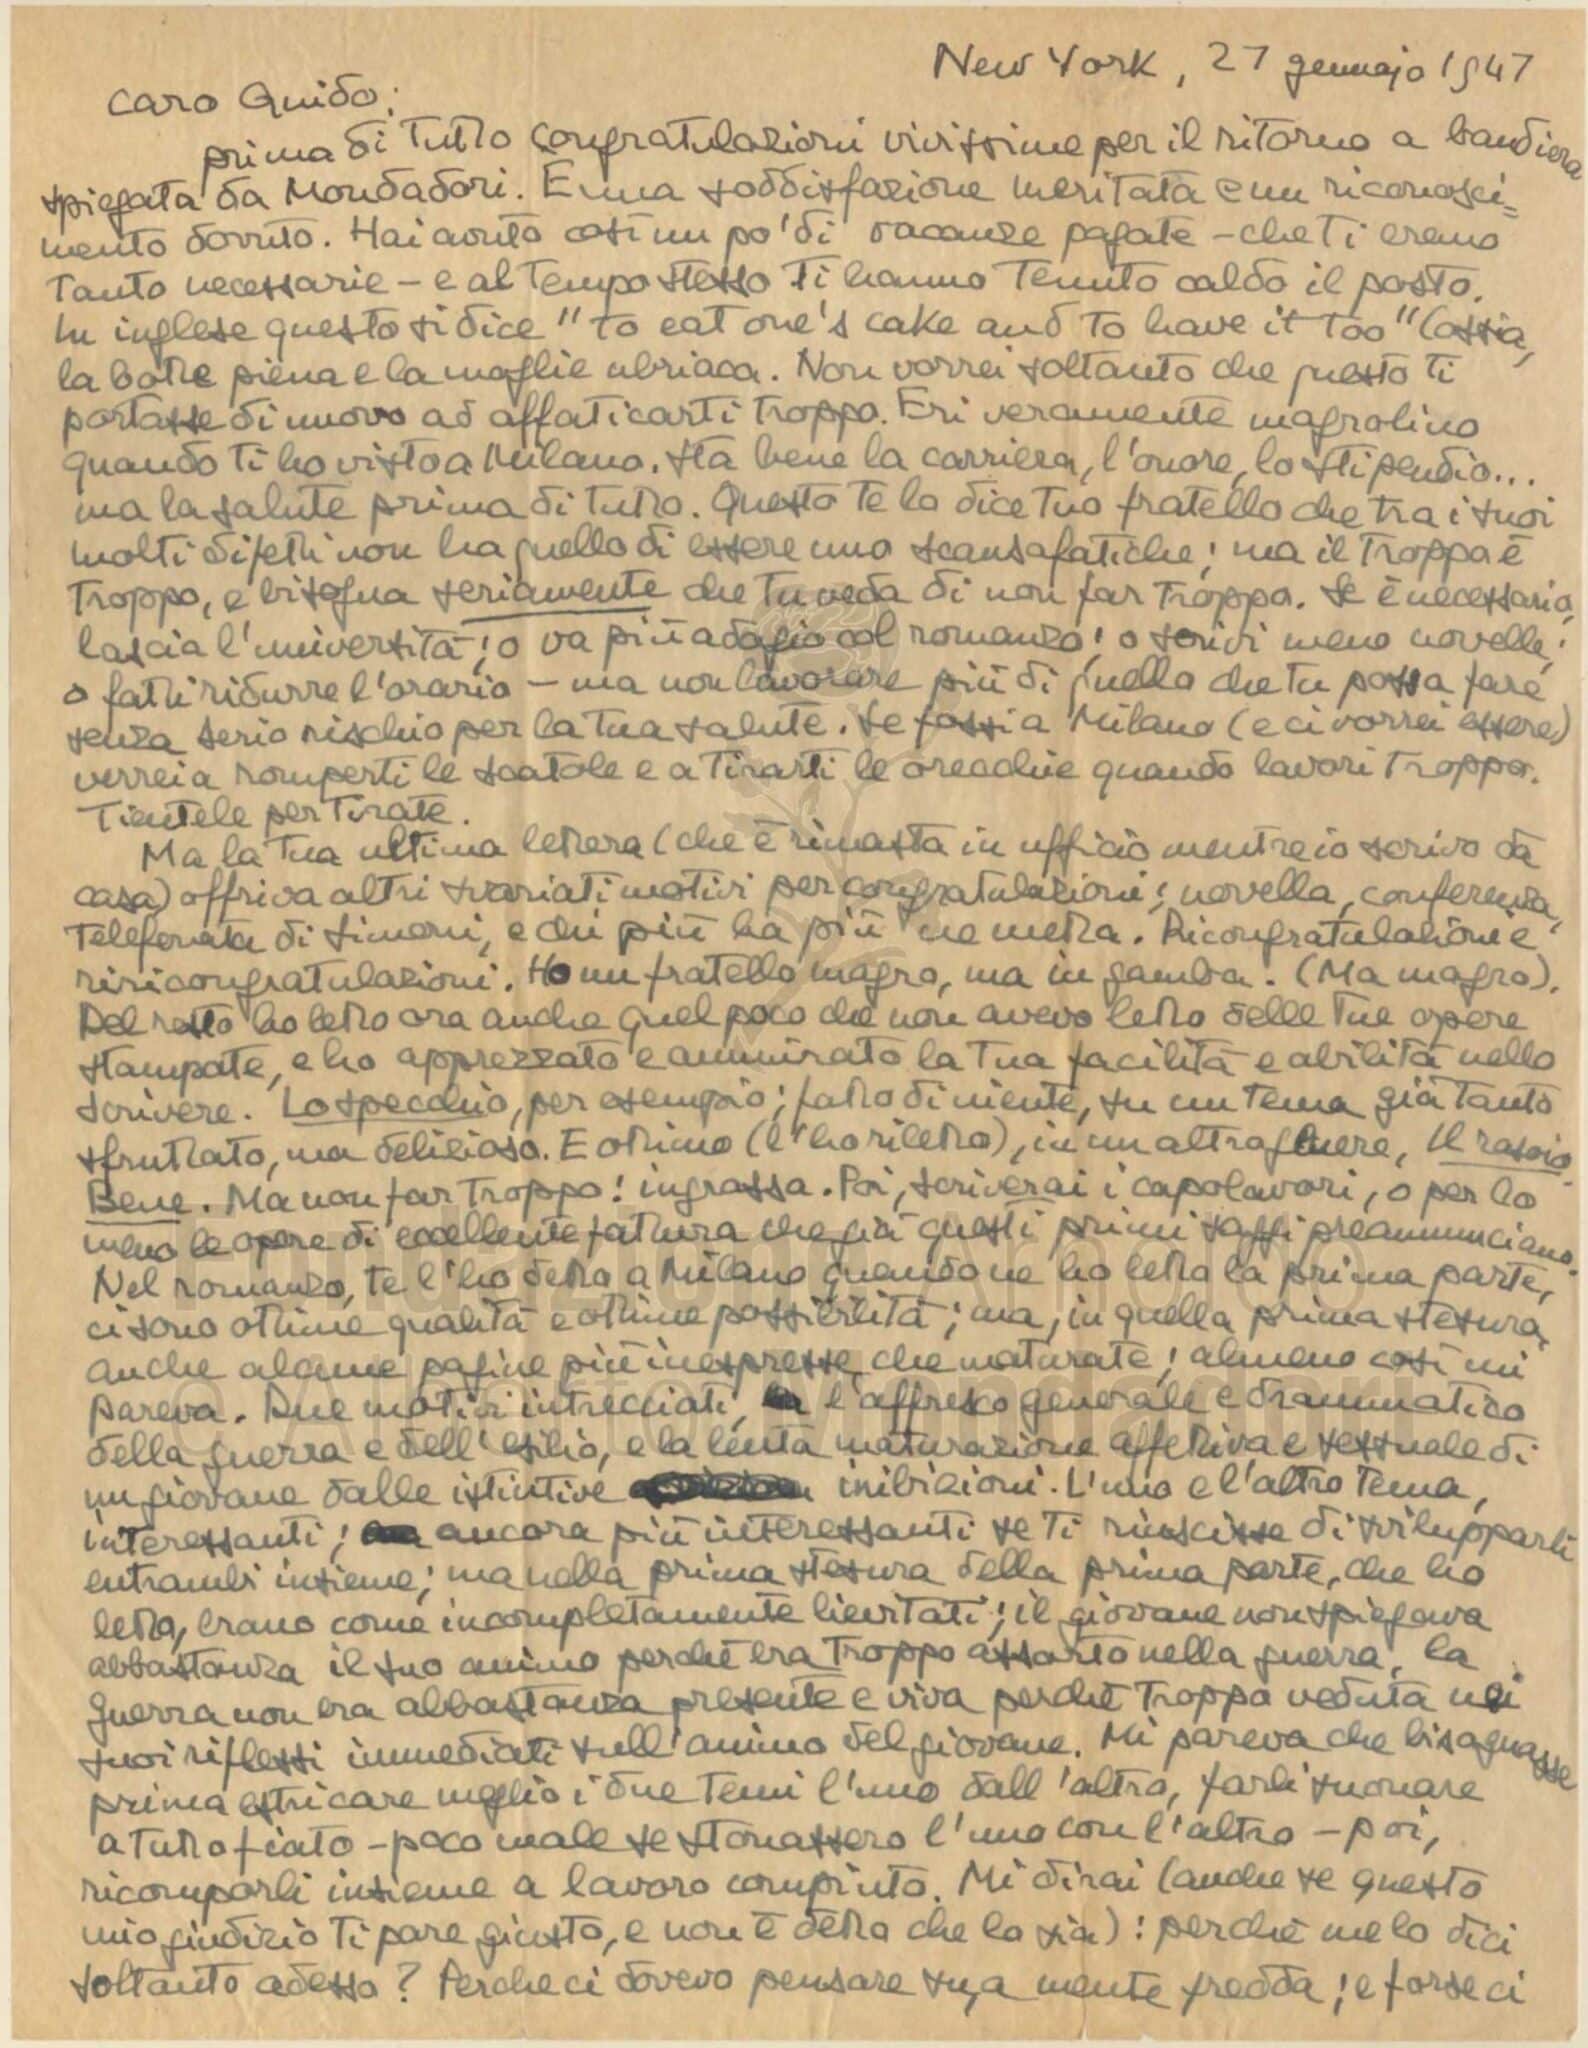 New York, 27 gennajo 1947
Caro Guido:
prima di tutto congratulazioni vivissime per il ritorno a bandiera
spiegata da Mondadori. È una soddisfazione meritata e un riconosci=
mento dovuto. Hai avuto così un po' di vacanze pagate – che ti erano
tanto necessarie – e al tempo stesso ti hanno tenuto caldo il posto.
In inglese questo si dice "to eat one's cake and to have it too" (ossia,
la botte piena e la moglie ubriaca. Non vorrei soltanto che questo ti
portasse di nuovo ad affaticarti troppo. Eri veramente magrolino
quando ti ho visto a Milano. Sta bene la carriera, l'onore, lo stipendio...
ma la salute prima di tutto. Questo te lo dice tuo fratello che tra i suoi
molti difetti non ha quello di essere uno scansafatiche; ma il troppo è
troppo, e bisogna seriamente che tu veda di non far troppo. Se è necessario,
lascia l'università; o va più adagio col romanzo; o scrivi meno novelle;
o fatti ridurre l'orario – ma non lavorare più di quello che tu possa fare
senza serio rischio per la tua salute. Se fossi a Milano (e ci vorrei essere)
verrei a romperti le scatole e a tirarti le orecchie quando lavori troppo.
Tientele per tirate.
Ma la tua ultima lettera (che è rimasta in ufficio mentre io scrivo da
casa) offriva altri svariati motivi per congratulazioni; novella, conferenza,
telefonata di Simoni, e chi più ha più ne metta. Ricongratulazioni e
riricongratulazioni. Ho un fratello magro, ma in gamba. (Ma magro).
Del resto ho letto ora anche quel poco che non avevo letto delle tue opere
stampate, e ho apprezzato e ammirato la tua facilità e abilità nello
scrivere. Lo specchio, per esempio; fatto di niente, su un tema già tanto
sfruttato, ma delizioso. E ottimo (l'ho riletto), in un altro genere, Il rasoio.
Bene. Ma non far troppo! ingrassa. Poi, scriverai i capolavori, o per lo
meno le opere di eccellente fattura che già questi primi saggi preannunciano.
Nel romanzo, te l'ho detto a Milano quando ne ho letto la prima parte,
ci sono ottime qualità e ottime possibilità; ma, in quella prima stesura,
anche alcune pagine più inespresse che maturate; almeno così mi
pareva. Due motivi intrecciati, l'affresco generale e drammatico
della guerra e dell'esilio, e la lenta maturazione affettiva e sessuale di
un giovane dalle istintive inibizioni. L'uno e l'altro tema,
interessanti; ancora più interessanti se ti riuscisse di svilupparli
entrambi insieme; ma nella prima stesura della prima parte, che ho
letto, erano come incompletamente lievitati; il giovane non spiegava
abbastanza il suo animo perché era troppo assorto nella guerra, la
guerra non era abbastanza presente e viva perché troppo veduta nei
suoi riflessi immediati sull'animo del giovane. Mi pareva che bisognasse
prima estricare meglio i due temi l'uno dall'altro, farli suonare
a tutto fiato – poco male se stonassero l'uno con l'altro – poi,
ricomporli insieme a lavoro compiuto. Mi dirai (anche se questo
mio giudizio ti pare giusto, e non è detto che lo sia): perché me lo dici
soltanto adesso? Perché ci dovevo pensare su, a mente fredda; e forse ci
Fondazione Arnoldo
e Alberto Mondadori